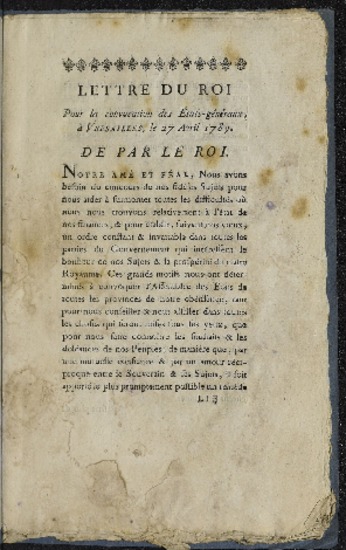 LETTRE DU ROI
Pour la convocation des États-généraux,
à VERSAILLES, le 27 Avril 1789.
DE PAR LE ROI.
NOTRE AMÉ ET FÉAL, Nous avons
besoin du concours de nos fidèles Sujets pour
nous aider à surmonter toutes les difficultés où
nous nous trouvons relativement à l'état de
nos finances, & pour établir, suivant nos vœux,
un ordre constant & invariable dans toutes les
parties du Gouvernement qui intéressent le
bonheur de nos Sujets & la prospérité de notre
Royaume. Ces grands motifs nous ont déter-
minés à convoquer l'Assemblée des Etats de
toutes les provinces de notre obéissance, tant
pour nous conseiller & nous assister dans toutes
les choses qui seront mises sous les yeux, que
pour nous faire connoître les souhaits & les
doléances de nos Peuples; de manière que, par
une mutuelle confiance & par un amour réci-
proque entre le Souverain & ses Sujets, soit
apporté le plus promptement possible un remède